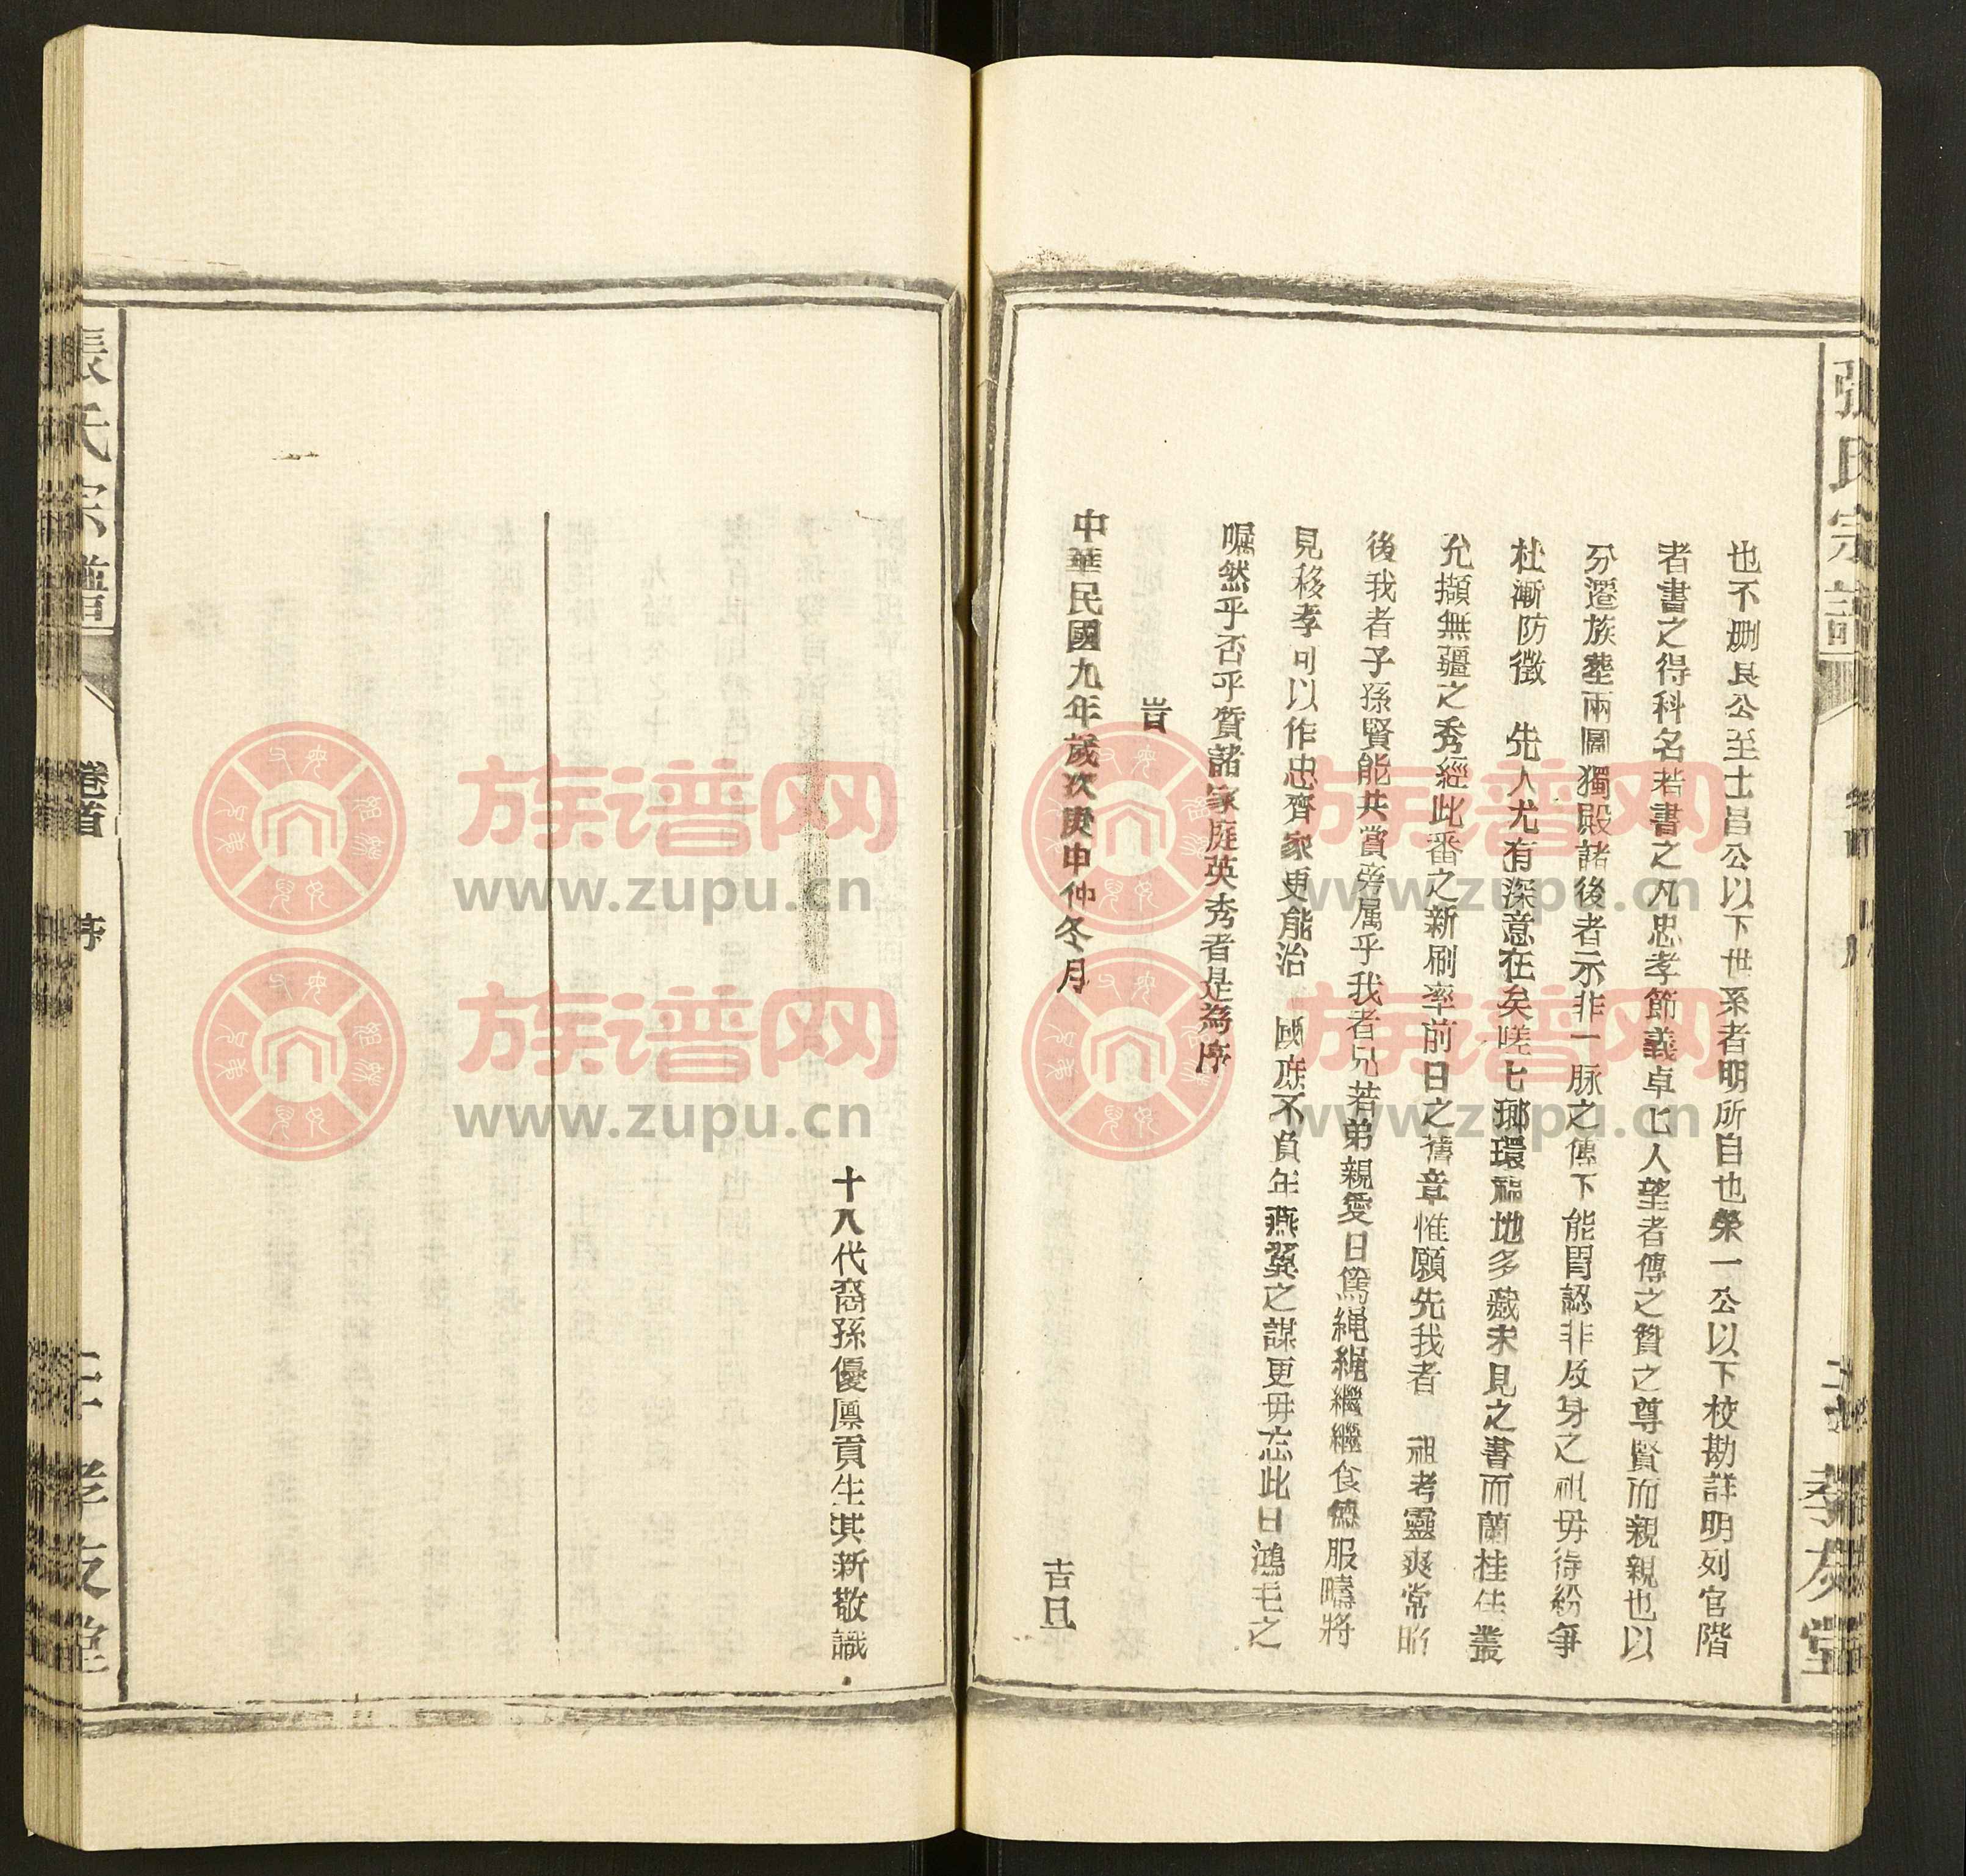 張氏宗譜
卷首 序
孝友堂
也不刪良公至士昌公以下世系者明所自也榮一公以下校勘詳明列官階
者書之得科名者書之凡忠孝節義卓七人望者傳之贊之尊賢而親親也以
分遷族塋兩圖獨殿諸後者示非一脉之傳下能冐認非及身之祖毋待紛爭
杜漸防微 先人尤有深意在矣嗟七瑯環福地多藏未見之書而蘭桂佳叢
允擷無疆之秀經此番之新刷率前日之舊章惟願先我者 祖考靈爽常昭
後我者子孫賢能共賞旁属乎我者兄若弟親愛日篤繩繩繼繼食德服疇將
見移孝可以作忠齊家更能治 國庶不負年燕翼之謀更毋忘此日鴻毛之
囑然乎否乎質諸家庭英秀者是為序
旹
中華民國九年歲次庚申仲冬月 吉旦
十八代裔孫優廪貢生淇新敬識
張氏宗譜
卷首 序
孝友堂
族谱网
www.zupu.cn
族谱网
www.zupu.cn
族谱网
www.zupu.cn
族谱网
www.zupu.cn